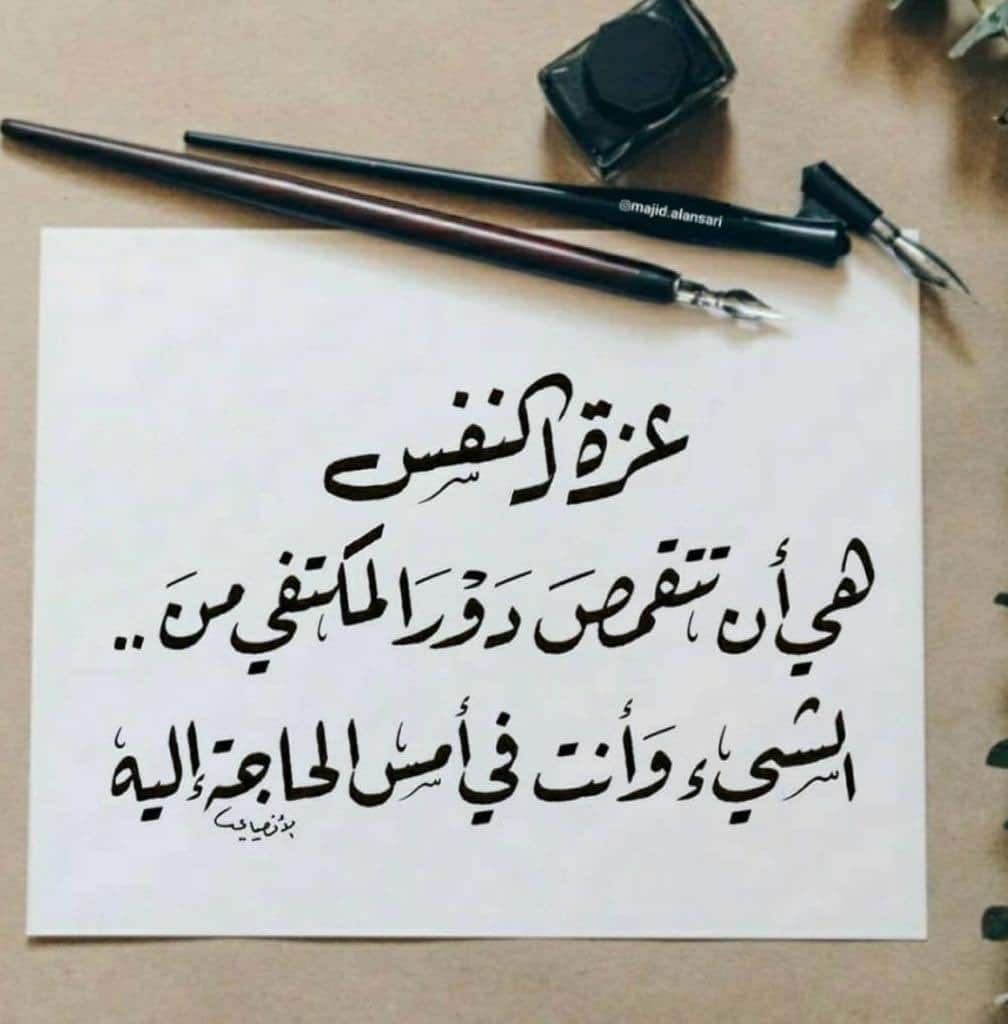 @majid.alansari
عزة النفس
هي أن تتقمصَ دَوْرَ المكتفي منَ ..
الشيء وَأنت في أمس الحاجة إليه
الأنصاري